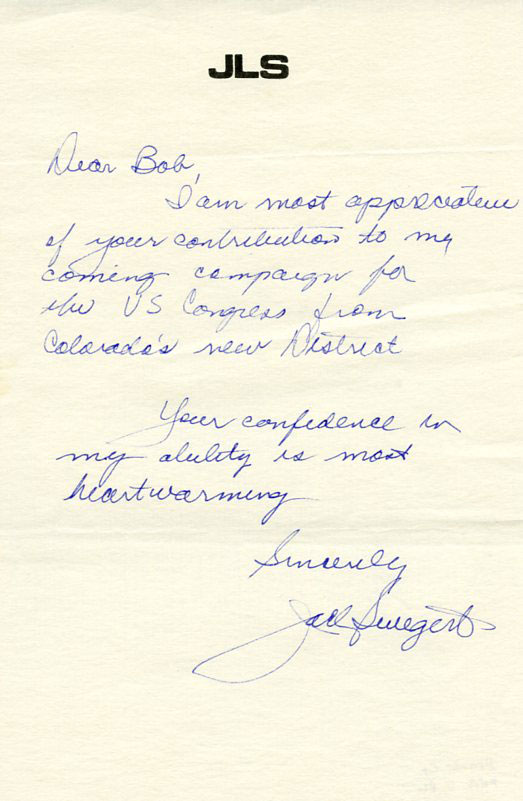 JLS
Dear Bob,
I am most appreciative
of your contribution to my
coming campaign for
the US Congress from
Colorado's new District
Your confidence in
my ability is most
heartwarming
Sincerely
Jack Swigert